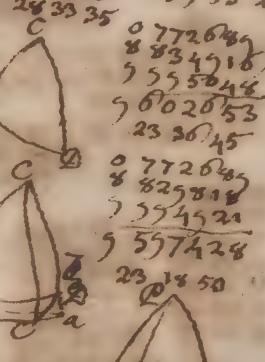 28 33 35
C
0 772689
8 834916
9 995048
9 602653
23 36 45
C
0 772689
8 829818
9 994921
9 597428
a
23 18 50